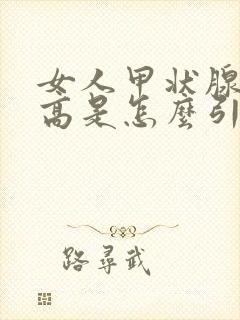 女人甲状腺
高是怎麼引
路尋武